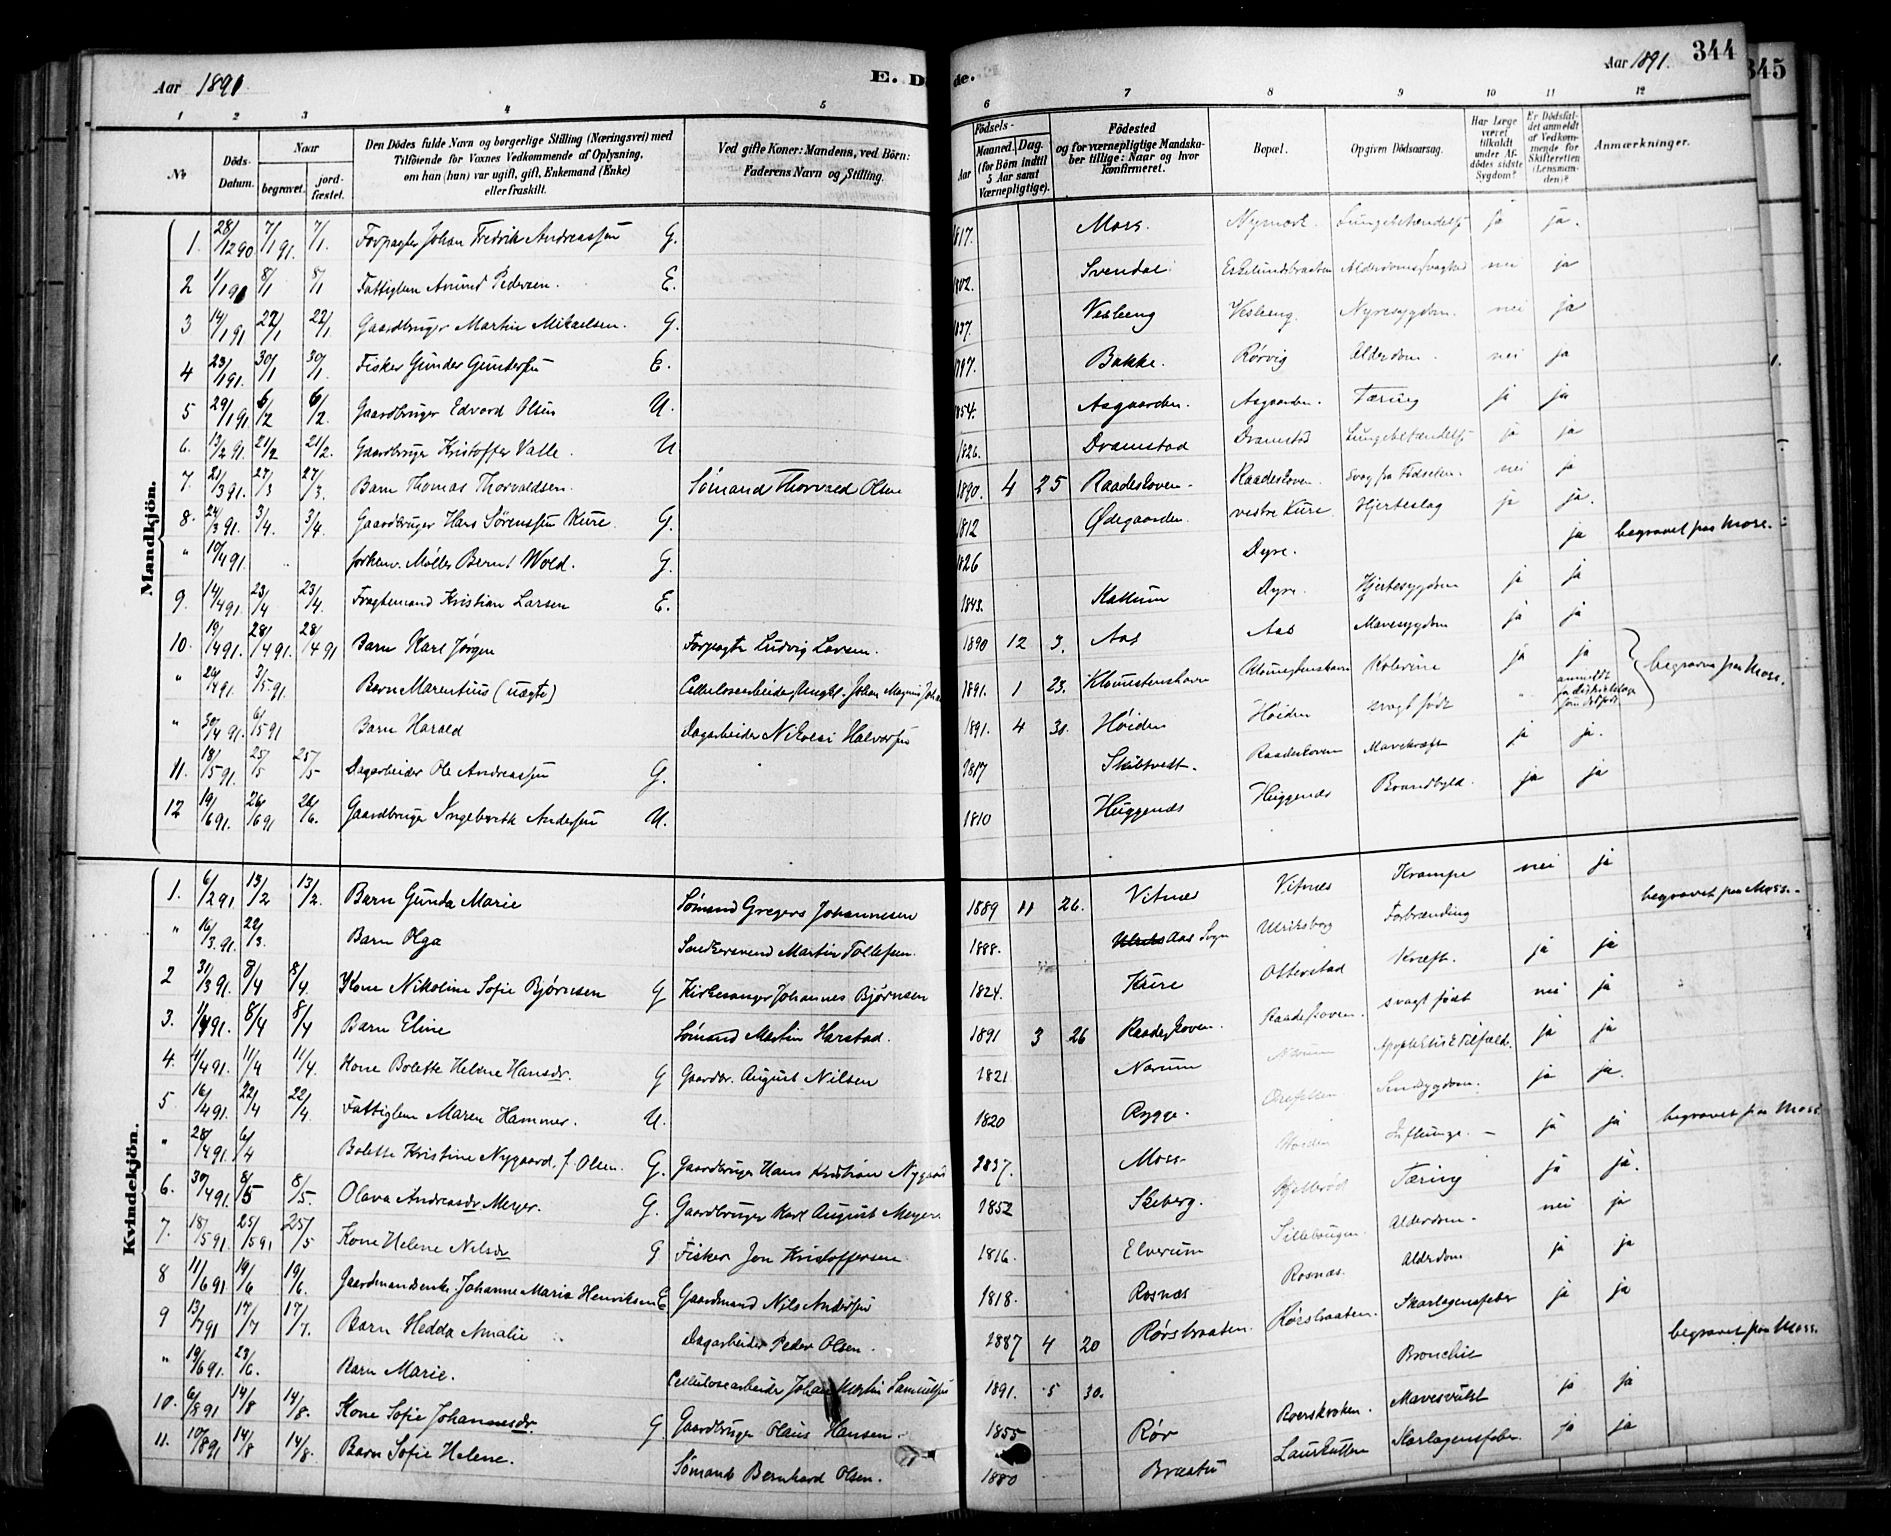 Aar 1891 E. D de. Aar 1891. 344
345
1 2 3 4 5 6 7 8 9 10 11 12
No Døds-Datum. Naar begravet. jordfæstet. Den Dødes fulde Navn og borgerlige Stilling (Næringsvei) med Tilføiende for Voxnes Vedkommende af Oplysning, om han (hun) var ugift, gift, Enkemand (Enke) eller fraskilt. Ved gifte Koner: Mandens, ved Börn: Faderens Navn og Stilling. Fødsels- Aar Maaned. Dag. (for Börn indtil 5 Aar samt Værnepligtige). Födested og for værnepligtige Mandskaber tillige: Naar og hvor konfirmeret. Bopæl. Opgiven Dödsaarsag. Har Læge været tilkaldt under Afdödes sidste Sygdom? Er Dödsfaldet anmeldt af Vedkommende for Skifteretten (Lensmanden)? Anmærkninger.
Mandkjön.
1. 28/12 90 7/1 91. 7/1. Forpagter Johan Fredrik Andreassen G. 1817. Moss. Nymark Lungebetændelse ja ja.
2 1/1 91 8/1 8/1 Fattiglem Amund Pedersen. E. 1802. Svendal. Eskelundsbraaten Alderdomssvaghed nei ja
3 14/1 91 22/1 22/1 Gaardbruger Martin Mikaelsen. G. 1837. Vesleng Vesleng. Nyresygdom. nei ja
4 23/1 91. 30/1 30/1. Fisker Gunder Gundersen E. 1787. Bakke. Rørvig Alderdom. nei ja
5 29/1 91 6/2 6/2. Gaardbruger Edvard Olsen U. 1854. Aasgaarden. Aasgaarden. Tæring ja ja
6. 13/2 91. 21/2 21/2. Gaardbruger Kristoffer Valle. U 1826. Dramstad Dramstad Lungebetændelse ja ja
7. 21/3 91. 27/3 27/3. Barn Thomas Thorvaldsen. Sømand Thorvald Olsen 1890. 4 25 Raadeskoven. Raadeskoven. Svag fra Fødselen. nei ja
8. 24/3 91. 3/4. 3/4. Gaardbruger Hans Sørenssen Kure. G. 1812 Ødegaarden. vestre Kure. Hjerteslag ja ja.
" 10/4 91. forhenv. Møller Bernt Wold. G. 1826 Dyre. ja begravet paa Moss.
9. 14/4 91. 23/4 23/4. Fragtemand Kristian Larsen E. 1843. Kallum Dyre. Hjertesygdom ja ja
10. 19/4 91. 28/4 91. 28/4 91 Barn Karl Jørgen Forpagter Ludvig Larsen. 1890 12 3. Aas Aas Mavesygdom ja ja
" 24/4 91. 3/5 91. Barn Marentius (uægte) Cellulosearbeider Ungk. Johan Magnus Joha 1891. 1 23. Kolerine ja ja begravne paa Moss.
" 30/4 91. 6/5 91 Barn Harald Dagarbeider Nikolai Halvorsen 1891. 4 30. Høiden Høiden svagt født "
11. 18/5 91. 25/5 25/5. Dagarbeider Ole Andreassen G. 1817 Skibtvedt. Raadeskoven Mavekræft ja ja.
12 19/6 91. 26/6 91 26/6. Gaardbruger Ingebreth Andersen U. 1810 Huggenæs Huggenæs Brandbyld. ja ja
Kvindekjön.
1. 6/2 91 13/2 13/2. Barn Gunda Marie Sømand Gregers Johannesen 1889 11 26. Vitnæs Vitnæs Krampe nei ja
" 16/3. 91. 22/3. Barn Olga Snedkersvend Martin Tollefsen 1888. Aas Sogn Ulriksborg Forbrænding begravet paa Moss.
2 31/3 91. 8/4 8/4. Kone Nikoline Sofie Bjørnsen G Kirkesanger Johannes Bjørnsen 1824. Kure Otterstad Kræft. ja ja
3. 1/4 91. 8/4 8/4 Barn Eline Sømand Martin Harstad. 1891 3 26 Raadeskoven. Raadeskoven. svagt født nei ja
4. 4/4 91. 11/4 11/4. Kone Bolette Helene Hansdr. G Gaardbr. August Nilsen 1821 Narum Narum Apoplektisk Tilfælde. ja ja
5 16/4 91. 22/4 22/4. Fattiglem Maren Hammer. U. 1820 Rygge. ja ja.
" 28/4 91. 6/4 Bolette Kristine Nygaard, f. Olsen. G. Gaardbruger Hans Kristian Nygaard 1837. Moss. Høiden ja ja begravet paa Moss.
6. 30/4 91. 8/5 8/5. Olava Andreasdr Meyer. G. Gaardbruger Karl August Meyer. 1852 Skeberg. Tæring ja ja.
7. 18/5 91. 25/5 91 25/5 Kone Helene Nilsdr G Fisker Jon Kristoffersen. 1816. Elverum Sillebaugen Alderdom. nei ja
8 11/6 91 19/6 19/6. Gaardmandsenke Johanne Marie Henriksen E Gaardmand Nils Andersen 1818. Rosnæs Rosnæs. Alderdom ja ja
9 13/7 91 17/7 17/7. Barn Hedda Amalie Dagarbeider Peder Olsen. 1887 4 20 Rørsbraaten. Rørsbraaten. Skarlagensfeber ja ja
" 19/6 91. 23/6. Barn Marie. Cellulosearbeider Johan Martin Samuelsen 1891. 5 30. Bronchit begravet paa Moss.
10. 6/8 91 14/8 14/8. Kone Sofie Johannesdr. G Gaardbruger Olaus Hansen. 1855 Rør Roerskroken. Mavesvulst ja ja
11. 10/8 91 14/8 14/8. Barn Sofie Helene. Sømand Bernhard Olsen. 1880 Braaten Skarlagensfeber. ja ja